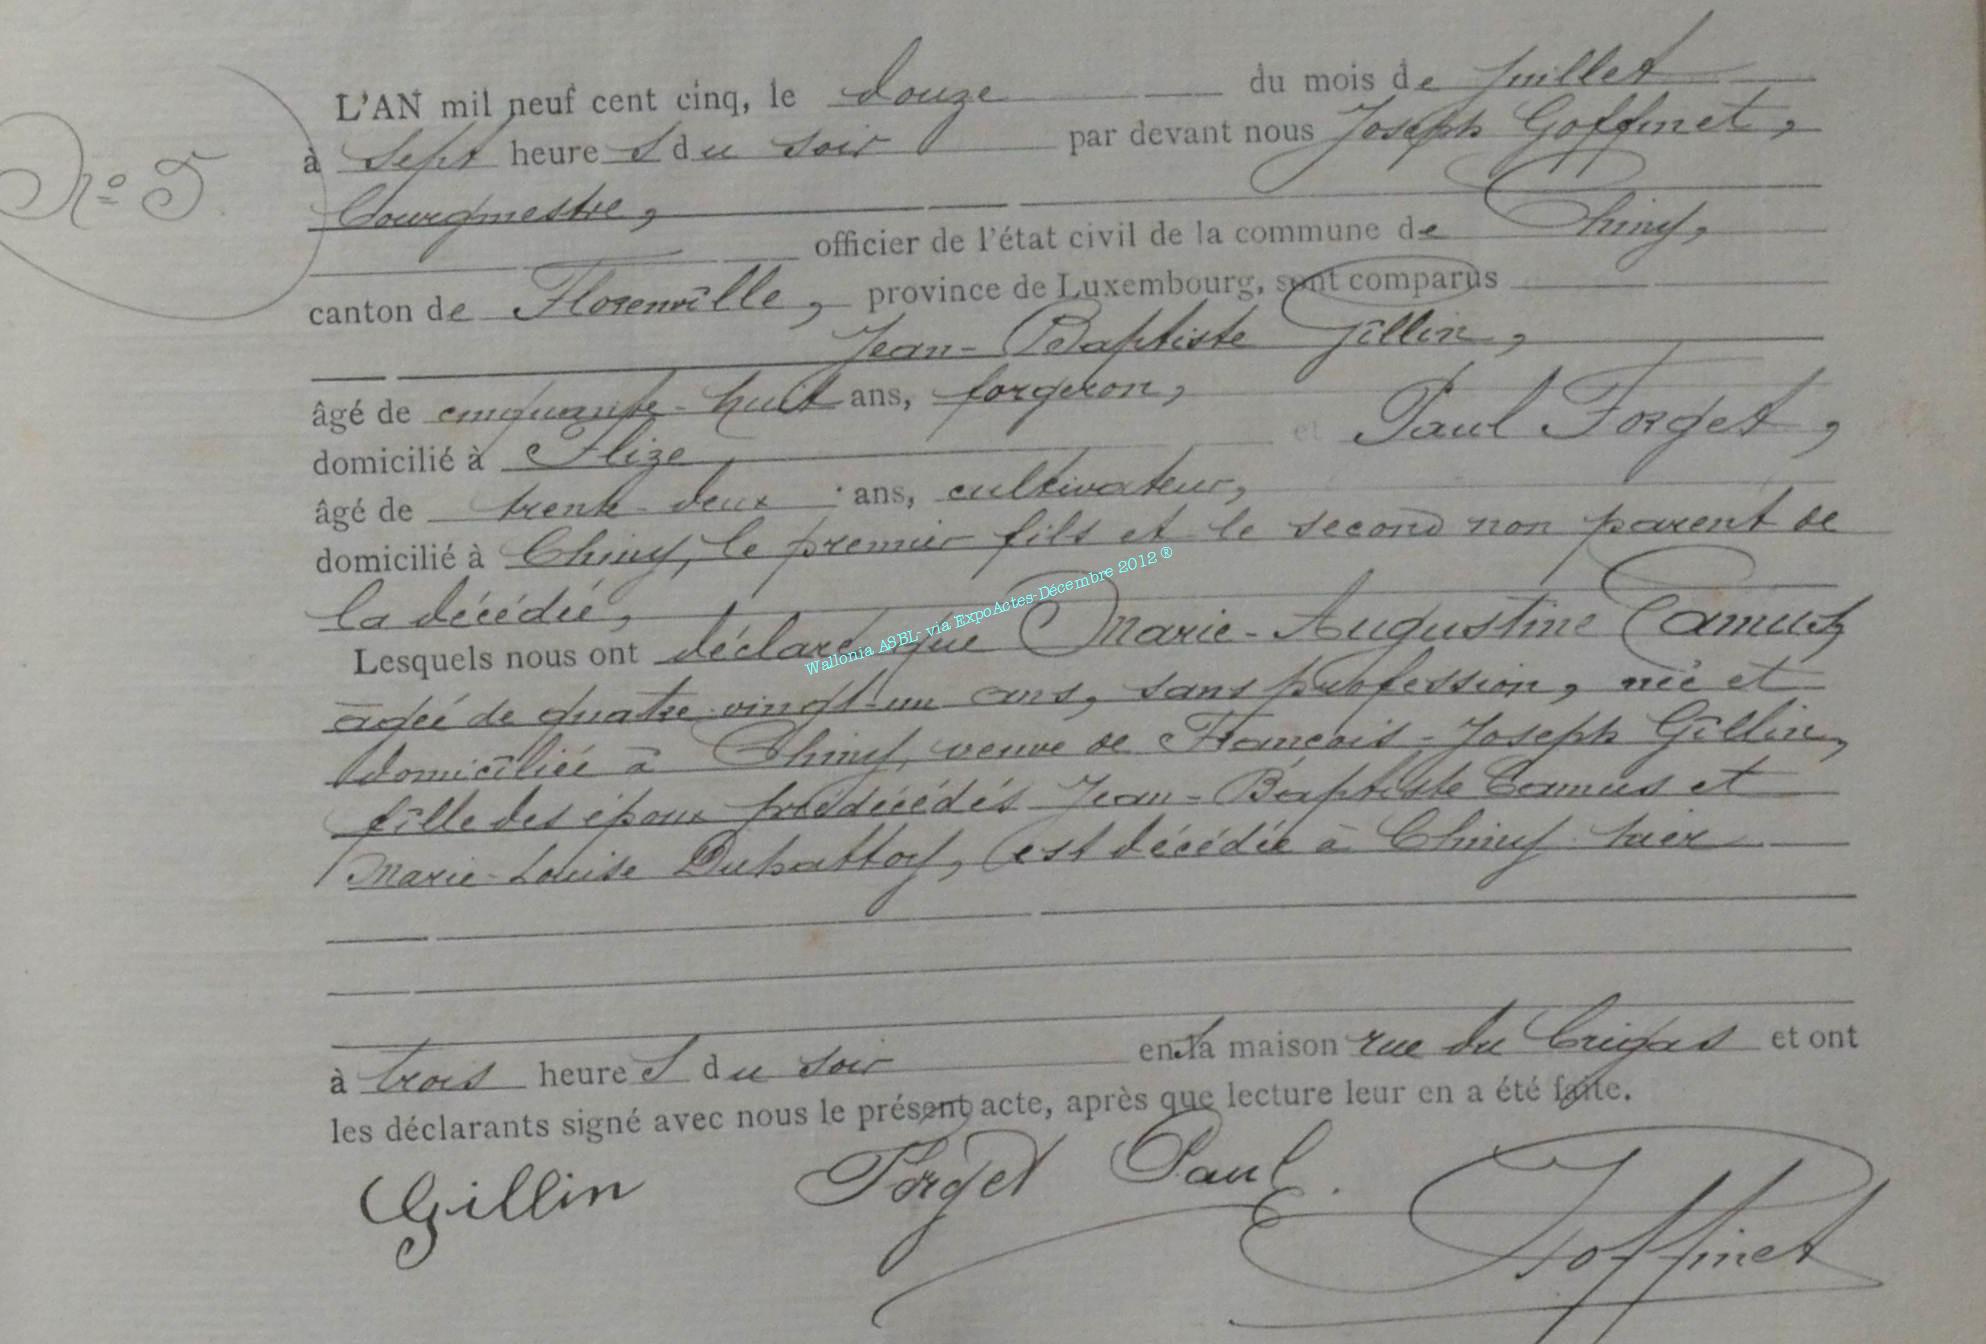 N° 5
L'AN mil neuf cent cinq, le douze du mois de juillet
à sept heures du soir par devant nous Joseph Goffinet,
bourgmestre,
officier de l'état civil de la commune de Chiny,
canton de Florenville, province de Luxembourg, sont comparus
Jean-Baptiste Gillin,
âgé de cinquante-huit ans, forgeron,
domicilié à Flize et Paul Forget,
âgé de trente-deux ans, cultivateur,
domicilié à Chiny, le premier fils et le second non parent de
la décédée,
Lesquels nous ont déclaré que Marie-Augustine Camus
âgée de quatre-vingt-un ans, sans profession, née et
domiciliée à Chiny, veuve de François-Joseph Gillin,
fille des époux prédécédés Jean-Baptiste Camus et
Marie-Louise Duhattoy, est décédée à Chiny hier
à trois heures du soir en sa maison rue du et ont
les déclarants signé avec nous le présent acte, après que lecture leur en a été faite.
Gillin Forget Paul Goffinet
Wallonia ASBL- via ExpoActes-Décembre 2012 ®